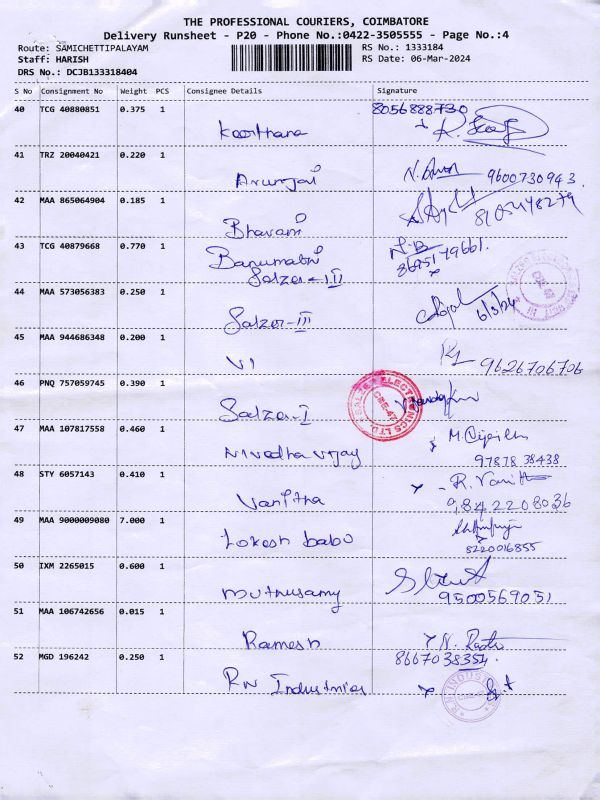 THE PROFESSIONAL COURIERS, COIMBATORE
Delivery Runsheet - P20 - Phone No.:0422-3505555 - Page No.:4
Route: SAMICHETTIPALAYAM
RS No.: 1333184
Staff: HARISH
RS Date: 06-Mar-2024
DRS No.: DCJB133318404
S No Consignment No Weight PCS Consignee Details Signature
40 TCG 40880851 0.375 1 8056888730
Keerthana
41 TRZ 20040421 0.220 1
Arunjai 9600730943
42 MAA 865064904 0.185 1
Bhavani
43 TCG 40879668 0.770 1 Banumathi
Salzer-III 8695179661.
44 MAA 573056383 0.250 1
Salzer-III 6/3/24
45 MAA 944686348 0.200 1
VI 9626706706
46 PNQ 757059745 0.390 1
Salzer-I
47 MAA 107817558 0.460 1
Nivedha Vijay 9787838438
48 STY 6057143 0.410 1 R. Vanitha
Vanitha 9842208036
49 MAA 9000009080 7.000 1
Lokesh babu 8220016855
50 IXM 2265015 0.600 1
Muthusamy 9500569051
51 MAA 106742656 0.015 1
Ramesh
52 MGD 196242 0.250 1 8667038354
RN Industries